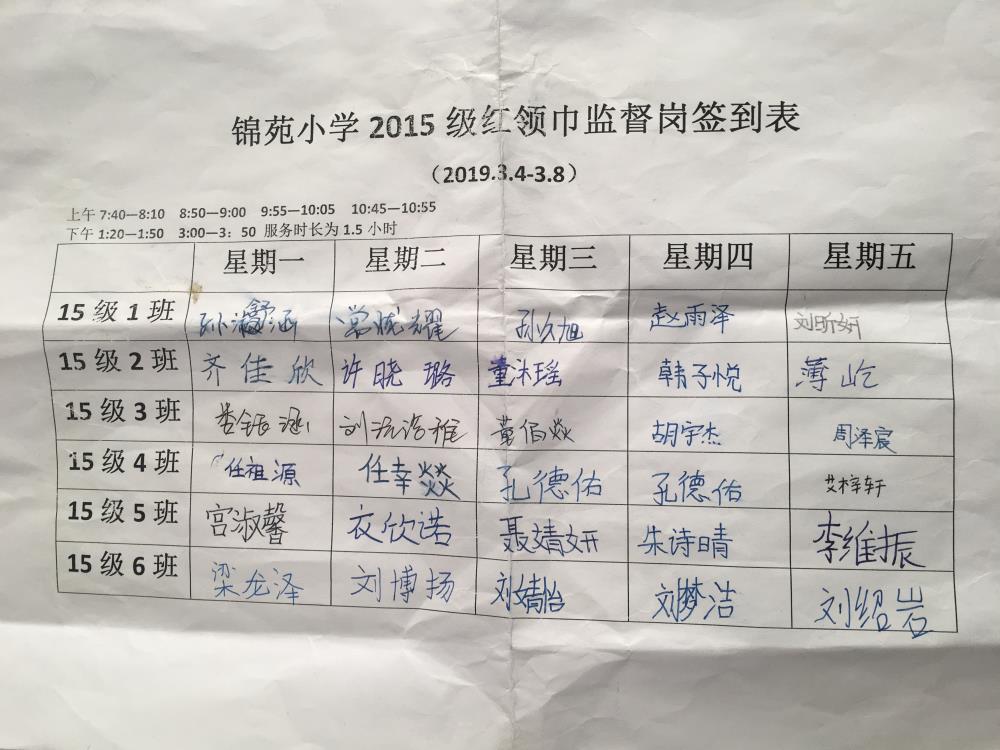 锦苑小学2015级红领巾监督岗签到表
（2019.3.4-3.8）
上午 7:40—8:10 8:50—9:00 9:55—10:05 10:45—10:55
下午 1:20—1:50 3:00—3：50 服务时长为 1.5 小时
星期一 星期二 星期三 星期四 星期五
15 级 1 班 孙 舒涵 孙久旭 赵雨泽 刘昕妍
15 级 2 班 齐佳欣 许晓璐 董沐瑶 韩子悦 薄屹
15 级 3 班 董佰焱 胡宇杰 周泽宸
15 级 4 班 任祖源 任幸燚 孔德佑 孔德佑 艾梓轩
15 级 5 班 宫淑馨 衣欣诺 聂婧妍 朱诗晴 李维振
15 级 6 班 梁龙泽 刘博扬 刘婧怡 刘梦洁 刘绍岩